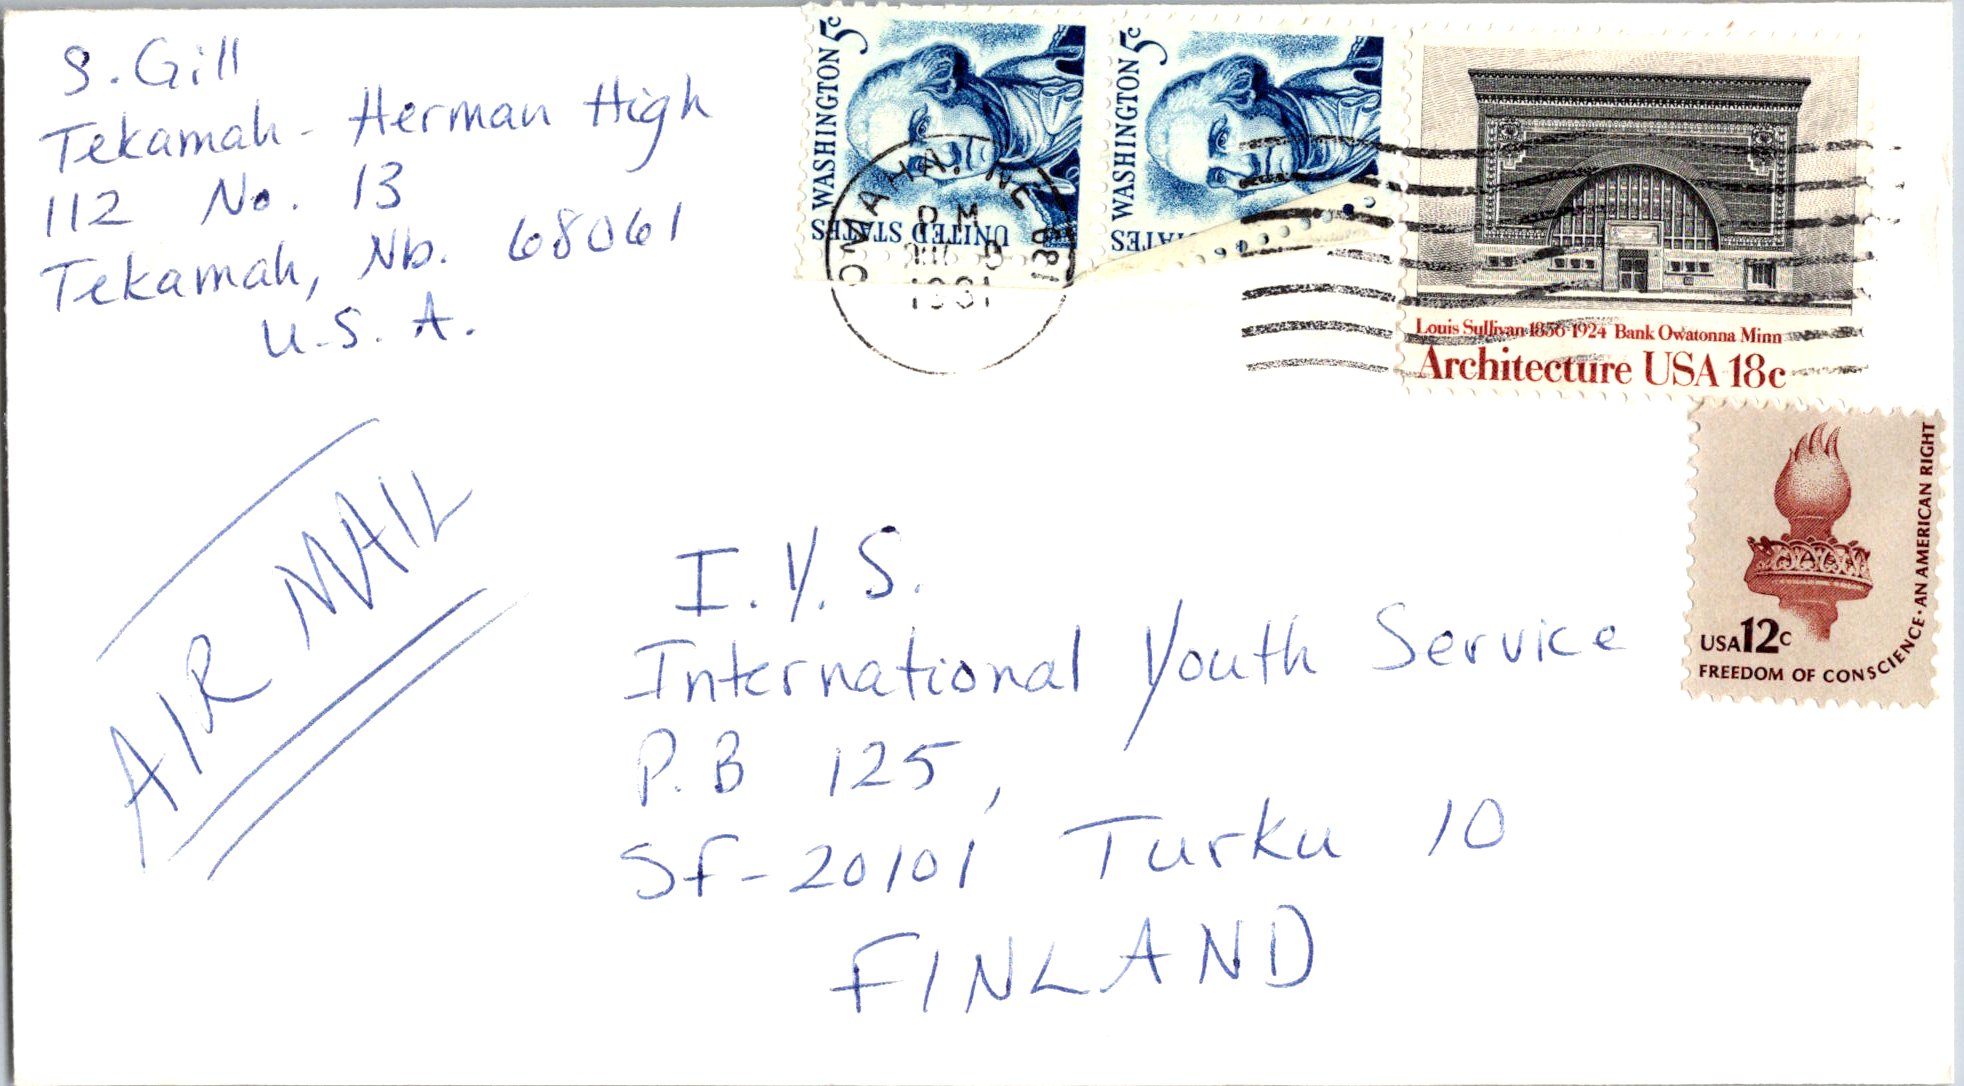 S. Gill
Tekamah - Herman High
112 No. 13
Tekamah, Nb. 68061
U.S.A.
WASHINGTON 5c
UNITED STATES
WASHINGTON 5c
OMAHA, NE 681
PM
1981
Louis Sullivan 1856-1924 Bank Owatonna Minn
Architecture USA 18c
USA 12c
FREEDOM OF CONSCIENCE · AN AMERICAN RIGHT
AIR MAIL
I.Y.S.
International Youth Service
P.B 125,
SF-20101 Turku 10
FINLAND